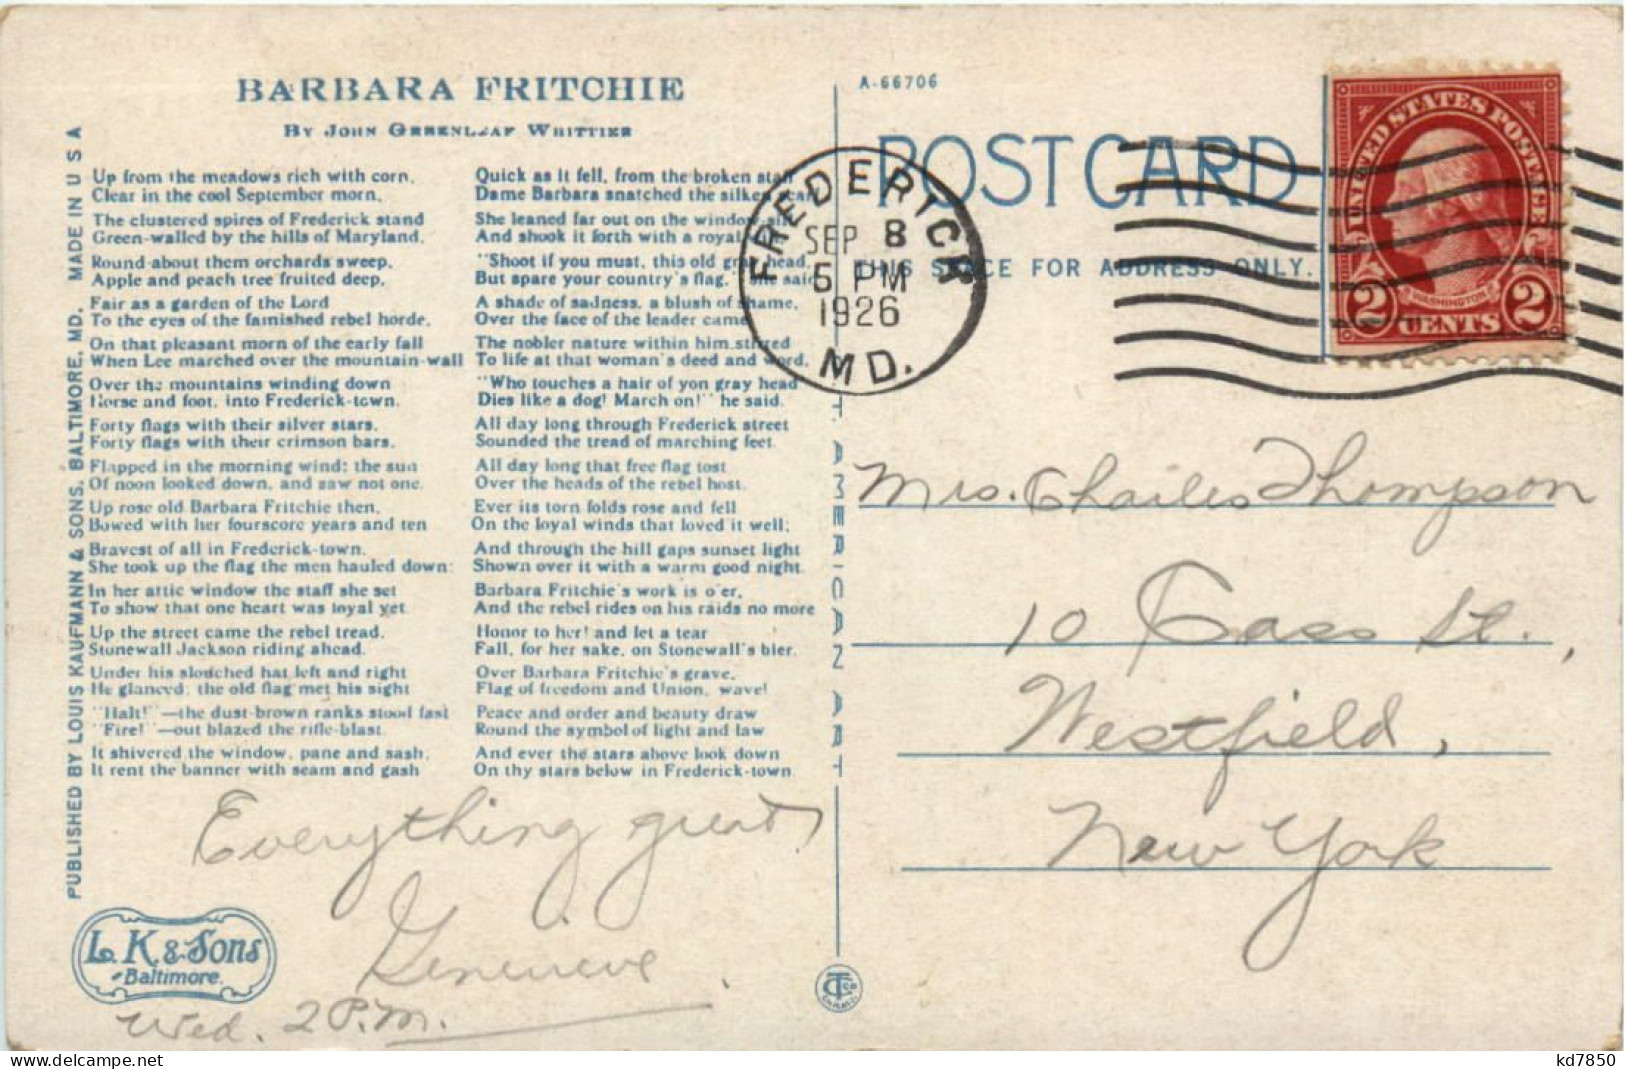 BARBARA FRITCHIE
BY JOHN GREENLEAF WHITTIER
Up from the meadows rich with corn,
Clear in the cool September morn,
The clustered spires of Frederick stand
Green-walled by the hills of Maryland.
Round about them orchards sweep,
Apple and peach tree fruited deep,
Fair as a garden of the Lord
To the eyes of the famished rebel horde,
On that pleasant morn of the early fall
When Lee marched over the mountain-wall
Over the mountains winding down
Horse and foot, into Frederick-town.
Forty flags with their silver stars,
Forty flags with their crimson bars,
Flapped in the morning wind: the sun
Of noon looked down, and saw not one.
Up rose old Barbara Fritchie then,
Bowed with her fourscore years and ten
Bravest of all in Frederick-town.
She took up the flag the men hauled down:
In her attic window the staff she set
To show that one heart was loyal yet.
Up the street came the rebel tread.
Stonewall Jackson riding ahead.
Under his slouched hat left and right
He glanced: the old flag met his sight
"Halt!"—the dust-brown ranks stood fast
"Fire!"—out blazed the rifle-blast.
It shivered the window, pane and sash,
It rent the banner with seam and gash
Quick as it fell, from the broken staff
Dame Barbara snatched the silken scarf
She leaned far out on the window-sill
And shook it forth with a royal
"Shoot if you must, this old gray head,
But spare your country's flag," she said
A shade of sadness, a blush of shame,
Over the face of the leader came
The nobler nature within him stirred
To life at that woman's deed and word.
"Who touches a hair of yon gray head
Dies like a dog! March on!" he said.
All day long through Frederick street
Sounded the tread of marching feet.
All day long that free flag tost
Over the heads of the rebel host.
Ever its torn folds rose and fell
On the loyal winds that loved it well;
And through the hill gaps sunset light
Shown over it with a warm good night.
Barbara Fritchie's work is o'er,
And the rebel rides on his raids no more
Honor to her! and let a tear
Fall, for her sake, on Stonewall's bier.
Over Barbara Fritchie's grave,
Flag of freedom and Union, wave!
Peace and order and beauty draw
Round the symbol of light and law
And ever the stars above look down
On thy stars below in Frederick-town.
PUBLISHED BY LOUIS KAUFMANN & SONS, BALTIMORE, MD. MADE IN U S A
Everything great,
Genevieve.
Wed. 2 P.M.
L. K. & Sons
Baltimore.
A-66706
POST CARD
THIS SPACE FOR ADDRESS ONLY.
FREDERICK
SEP 8
5 PM
1926
MD.
UNITED STATES POSTAGE
WASHINGTON
2 CENTS 2
Mrs. Charles Thompson
10 Cass St.,
Westfield,
New York
AMERICAN ART
kd7850